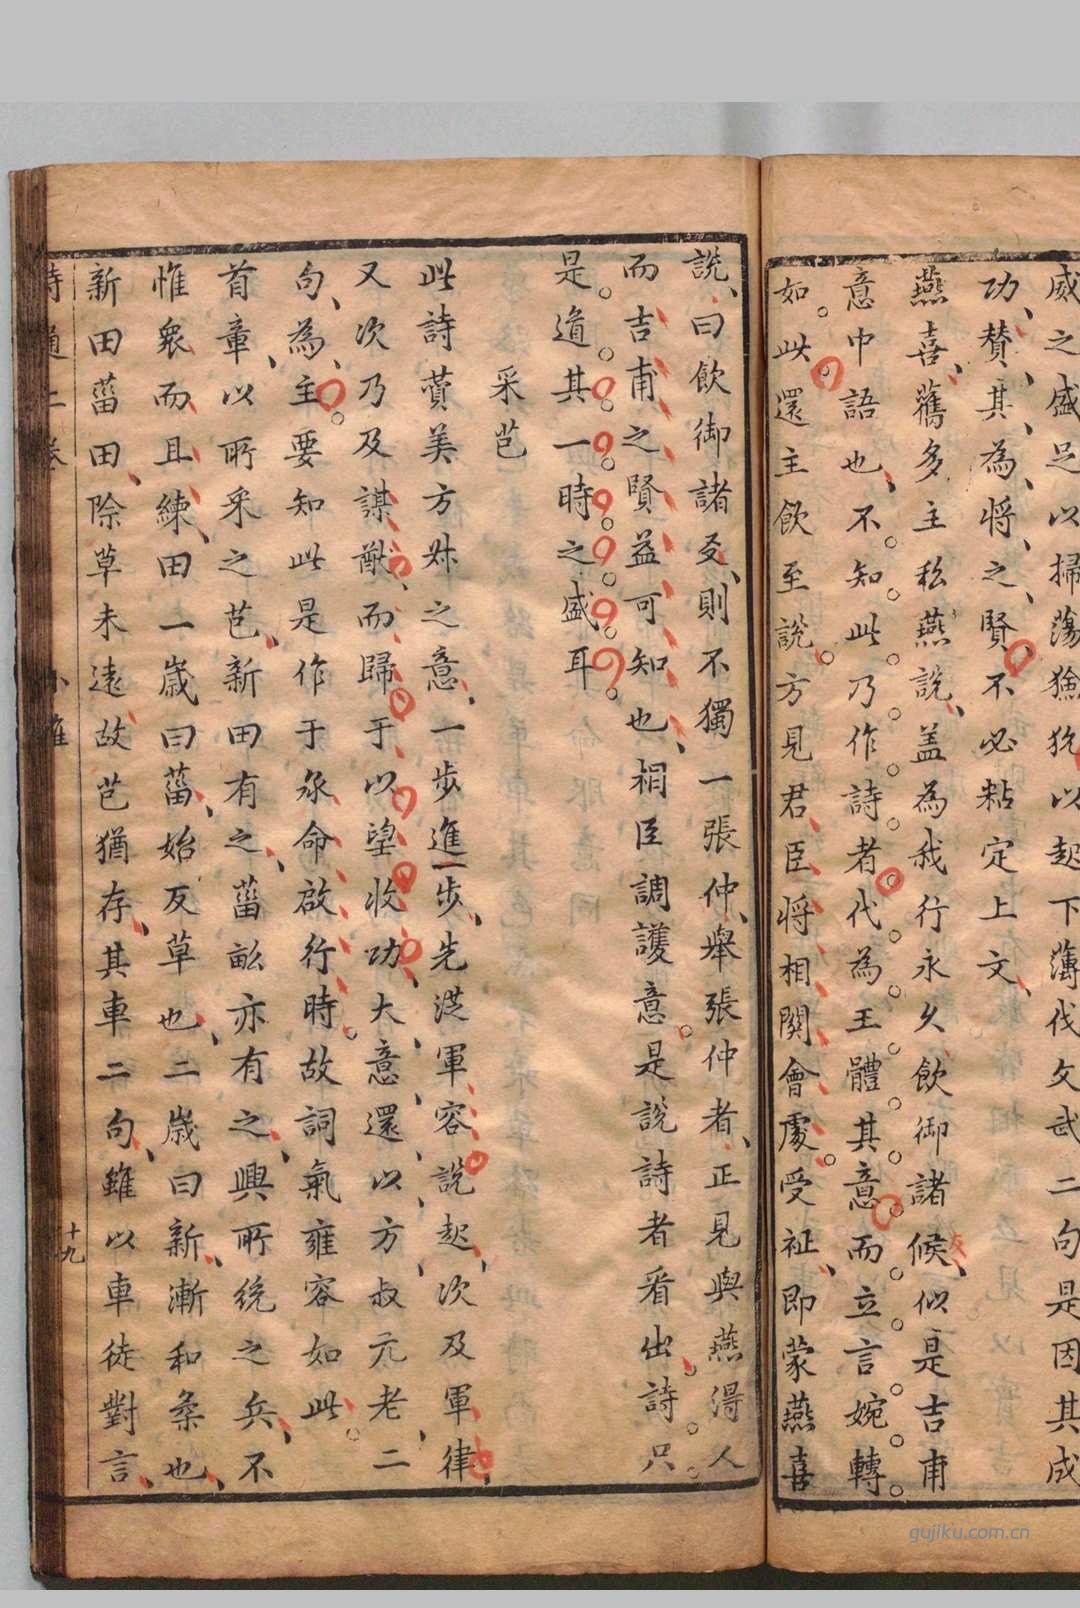 威之盛足以掃蕩獫狁以起下薄伐文武二句是因其成
功、賛其為、將、之、賢、不必粘定上文、
燕喜、舊多主私燕說、盖為我行永久飲御諸候、似是吉甫
意中語也、不知此乃作詩者代為王體其意而立言婉轉
如此還主飲至說方見君臣將相関會處受祉、即蒙燕喜
說、曰飲御諸友、則不獨一張仲、舉張仲者、正見與燕得人
而吉甫之賢益可知也、相臣調護意是說詩者看出詩只
是道其一時之盛耳
采芑
此詩賛美方叔之意、一步進一步、先從軍容說起、次及軍律、
又次乃及謀猷、而歸于以望收功、大意還以方叔元老二
句、為主要知此是作于承命啟行時故詞氣雍容如此
首章、以所采之芑、新田有之、菑畝亦有之、興所統之兵、不
惟衆而且練、田一歲曰菑、始反草也、二歲曰新、漸和柔也、
新田菑田、除草未遠故芑猶存、其車二句、雖以車徒對言、
詩通二卷 小雅 十九
gujiku.com.cn